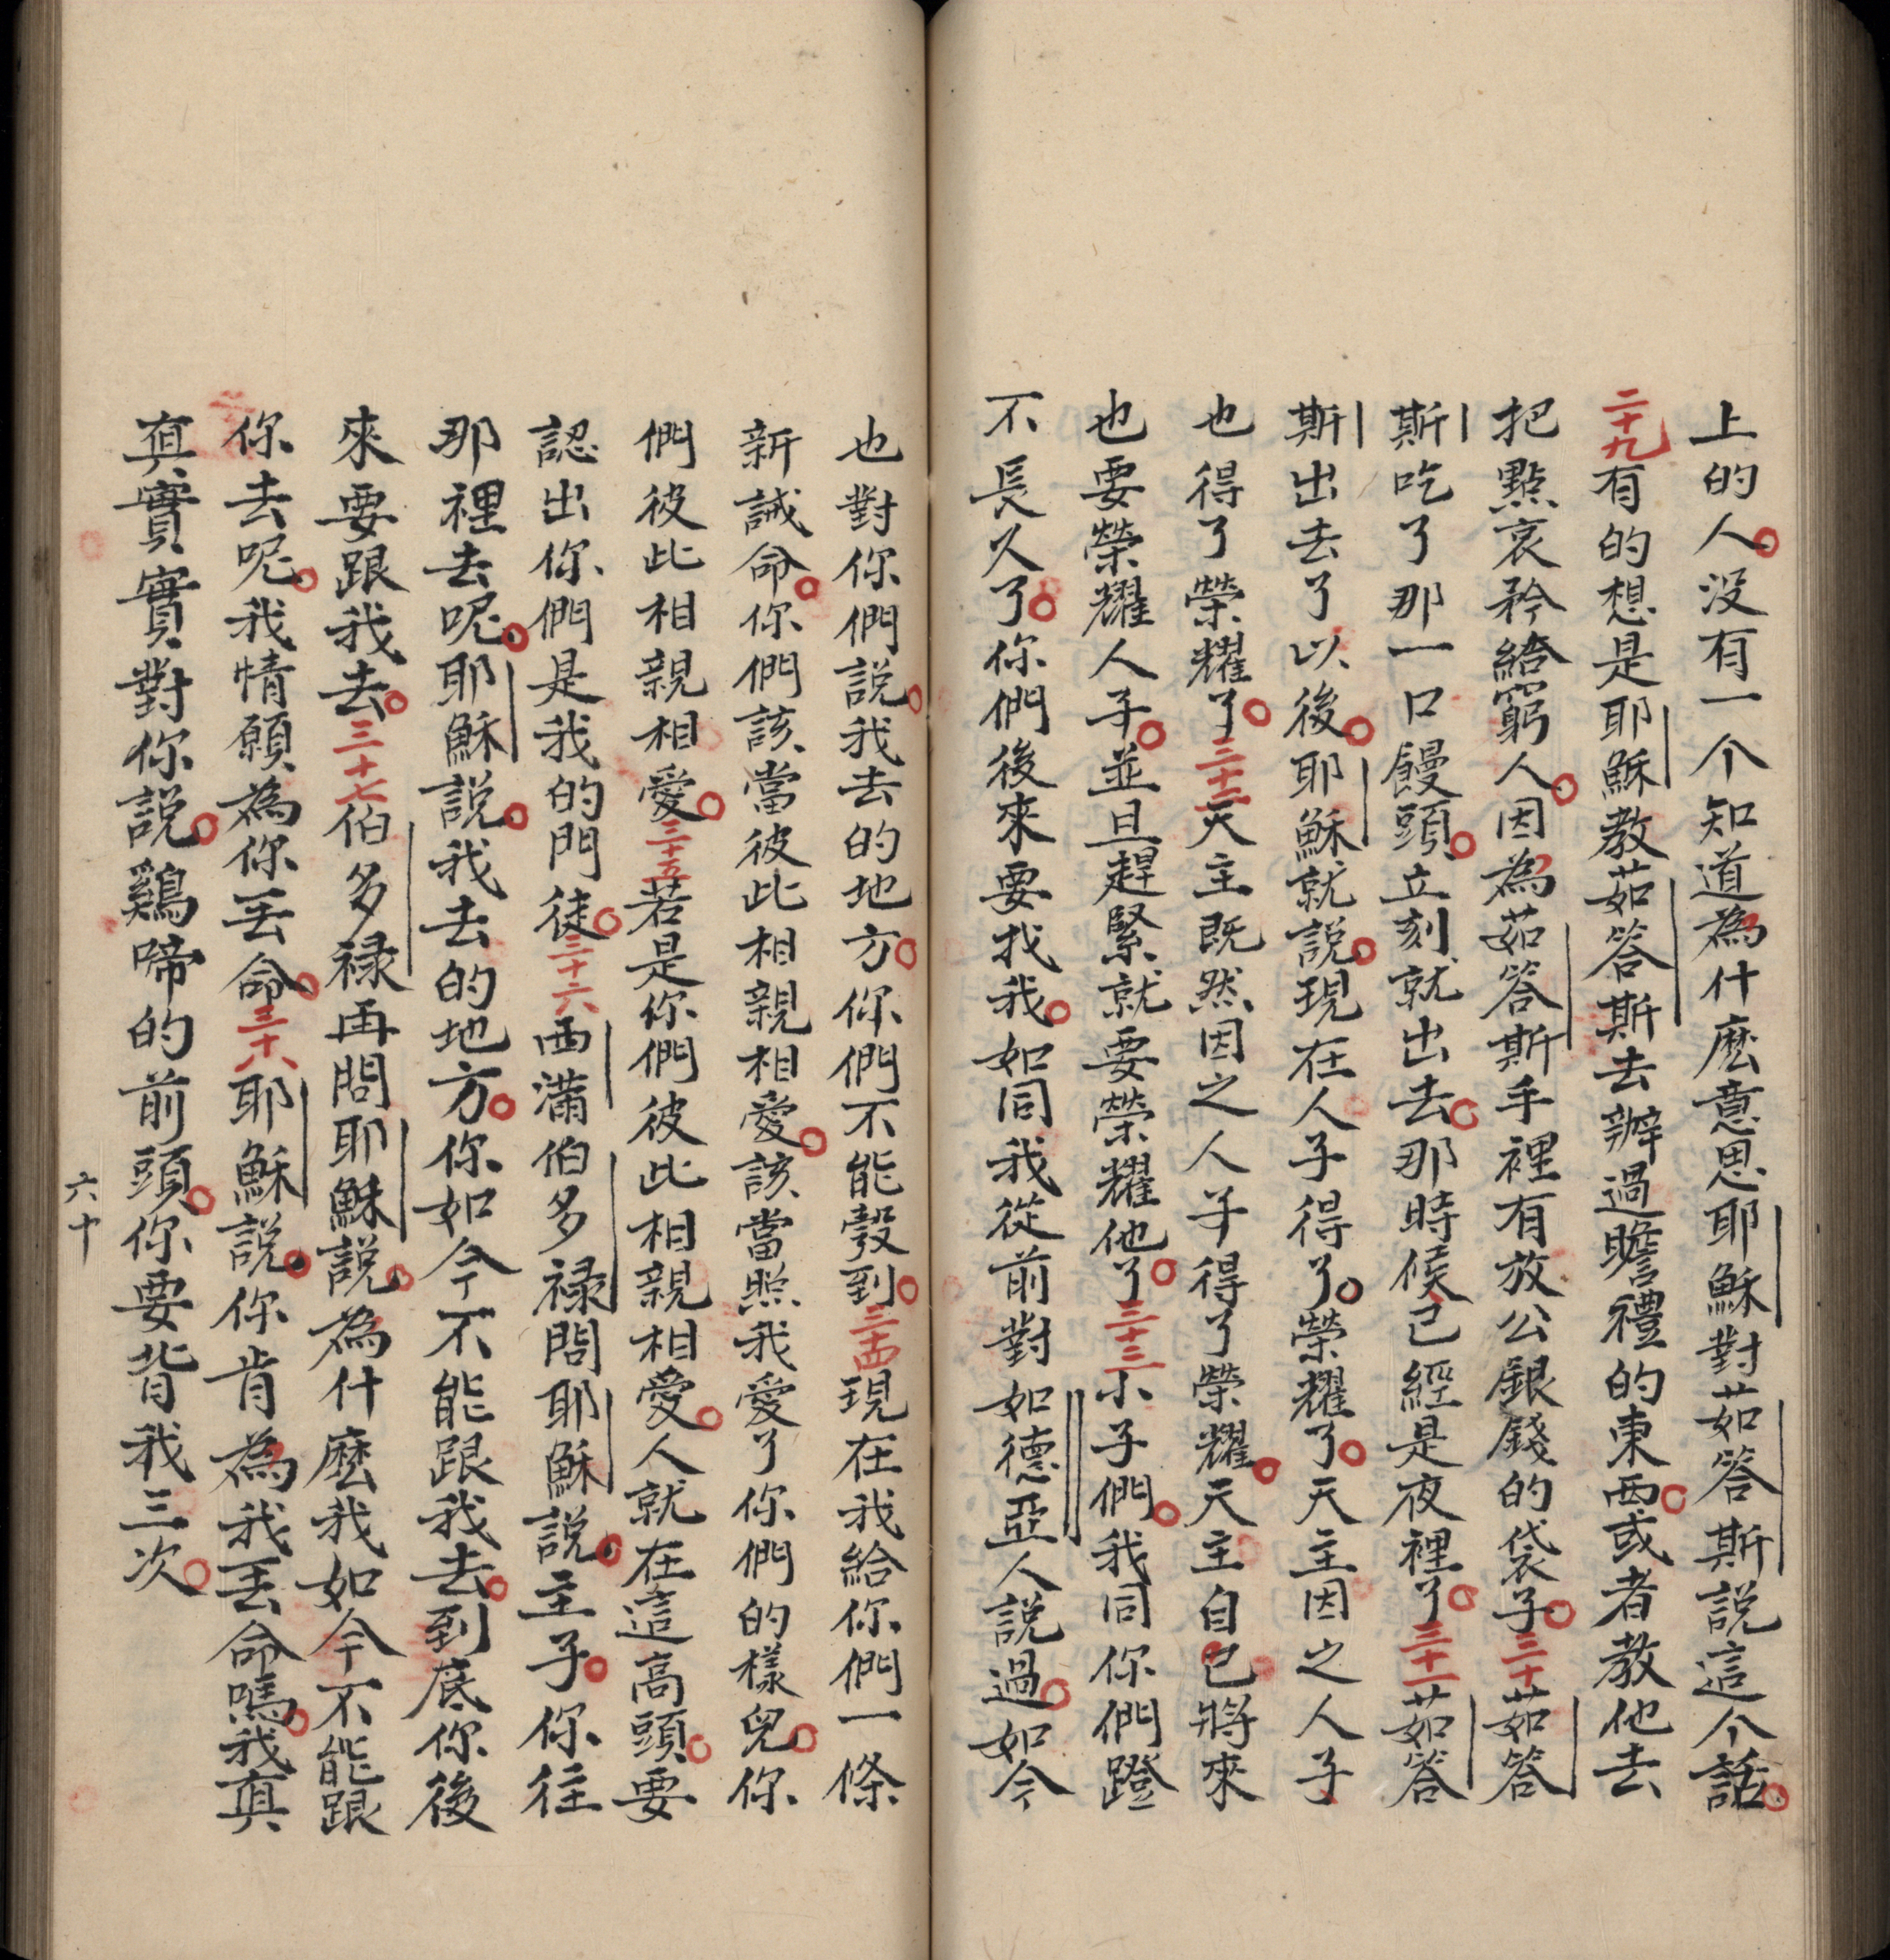 上的人。没有一个知道為什麽意思耶穌對茹答斯說這个話。
二十九有的想是耶穌教茹答斯去辦過瞻禮的東西。或者教他去
把點哀矜給窮人。因為茹答斯手裡有放公銀錢的袋子。三十茹答
斯吃了那一口饅頭。立刻就出去。那時候已經是夜裡了。三十一茹答
斯出去了以後。耶穌就說。現在人子得了。榮耀了。天主因之人子
也得了榮耀了。三十二天主既然因之人子得了榮耀。天主自己將來
也要榮耀人子。並且趕緊就要榮耀他了。三十三小子們。我同你們蹬
不長久了。你們後來要找我。如同我從前對如德亞人說過。如今
也對你們說。我去的地方。你們不能彀到。三十四現在我給你們一條
新誡命。你們該當彼此相親相愛。該當照我愛了你們的樣兒。你
們彼此相親相愛。三十五若是你們彼此相親相愛。人就在這高頭。要
認出你們是我的門徒。三十六西滿伯多禄問耶穌說。主子。你往
那裡去呢。耶穌說。我去的地方。你如今不能跟我去。到底你後
來要跟我去。三十七伯多禄再問耶穌說。為什麽我如今不能跟
你去呢。我情願為你丢命。三十八耶穌說。你肯為我丢命嗎。我真
真實實對你說。鷄啼的前頭。你要背我三次。
六十